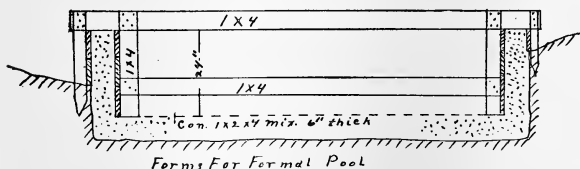 1x4
1x4
24"
1x4
Con. 1x2x4 mix. 6" thick
Forms For Formal Pool